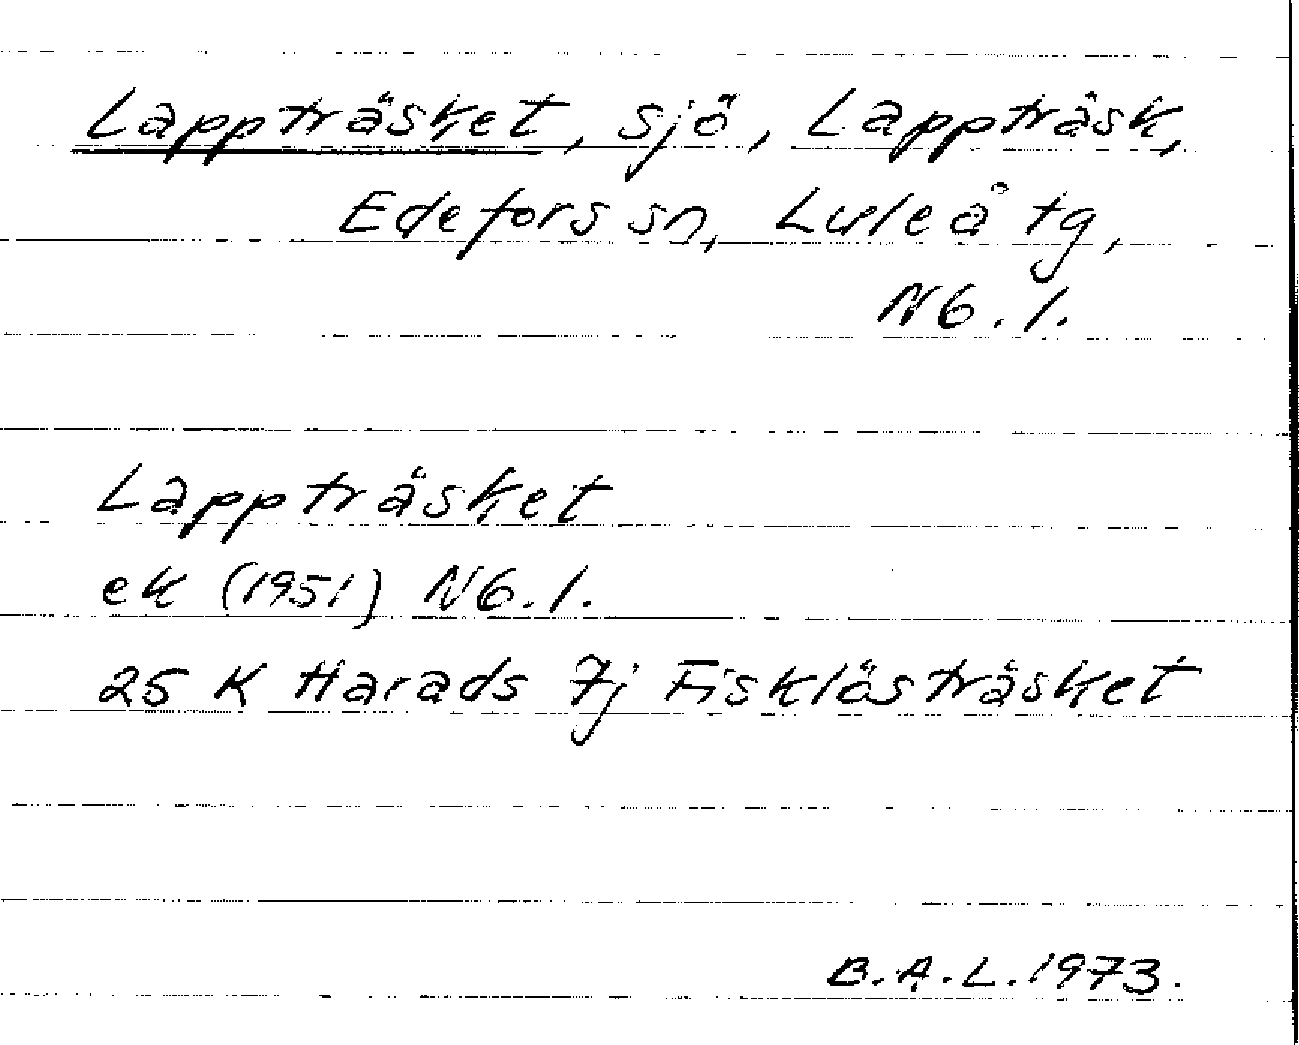 Lappträsket, sjö, Lappträsk,
Edefors sn, Luleå tg,
Nb.l.
Lappträsket
ek (1951) Nb.l.
25 K Harads 7j Fisklösträsket
B.A.L. 1973.